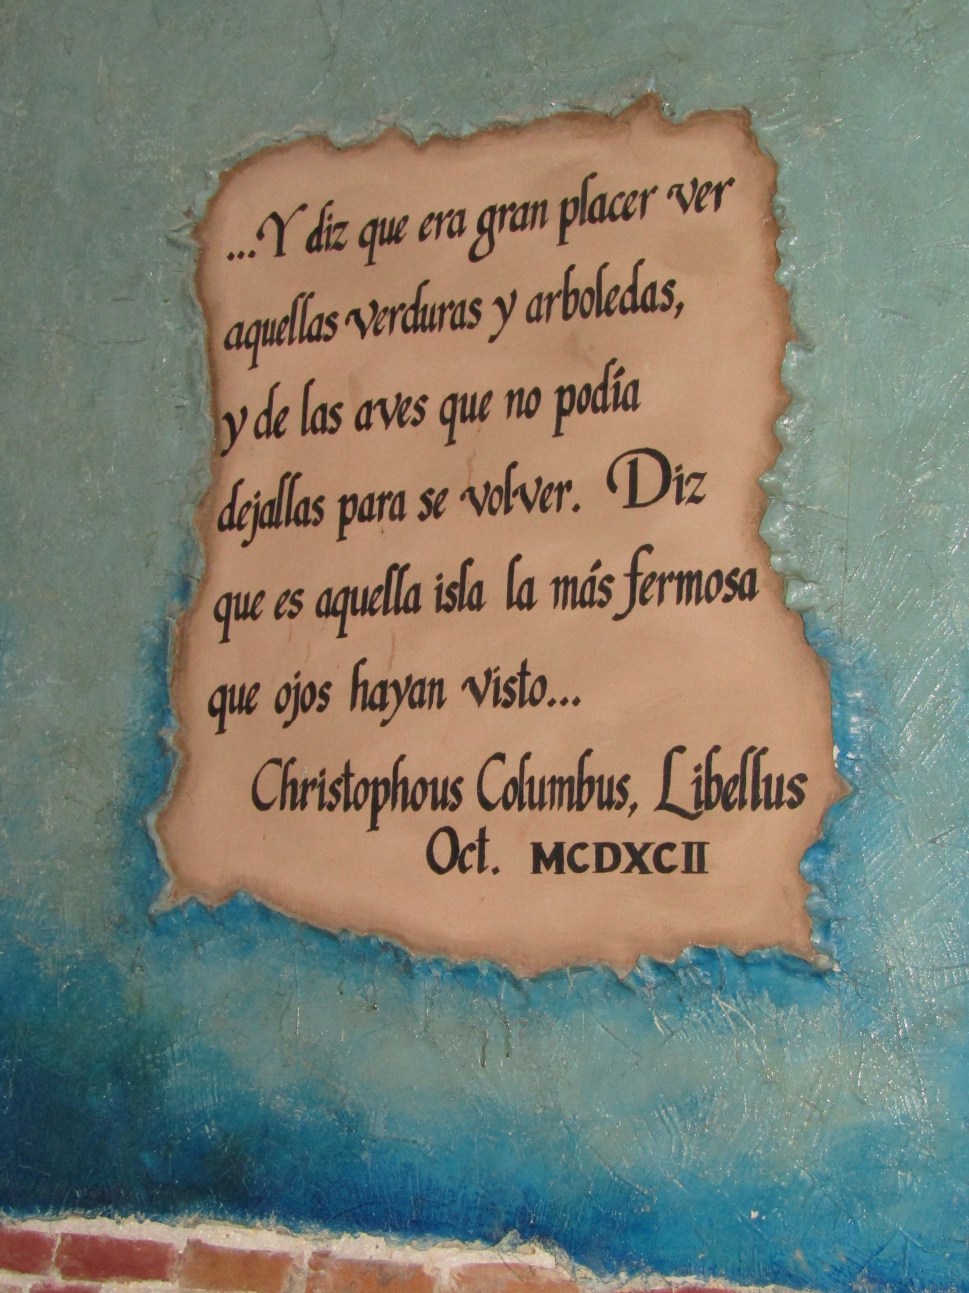 ...Y diz que era gran placer ver
aquellas verduras y arboledas,
y de las aves que no podía
dejallas para se volver. Diz
que es aquella isla la más fermosa
que ojos hayan visto...
Christophous Columbus, Libellus
Oct. MCDXCII